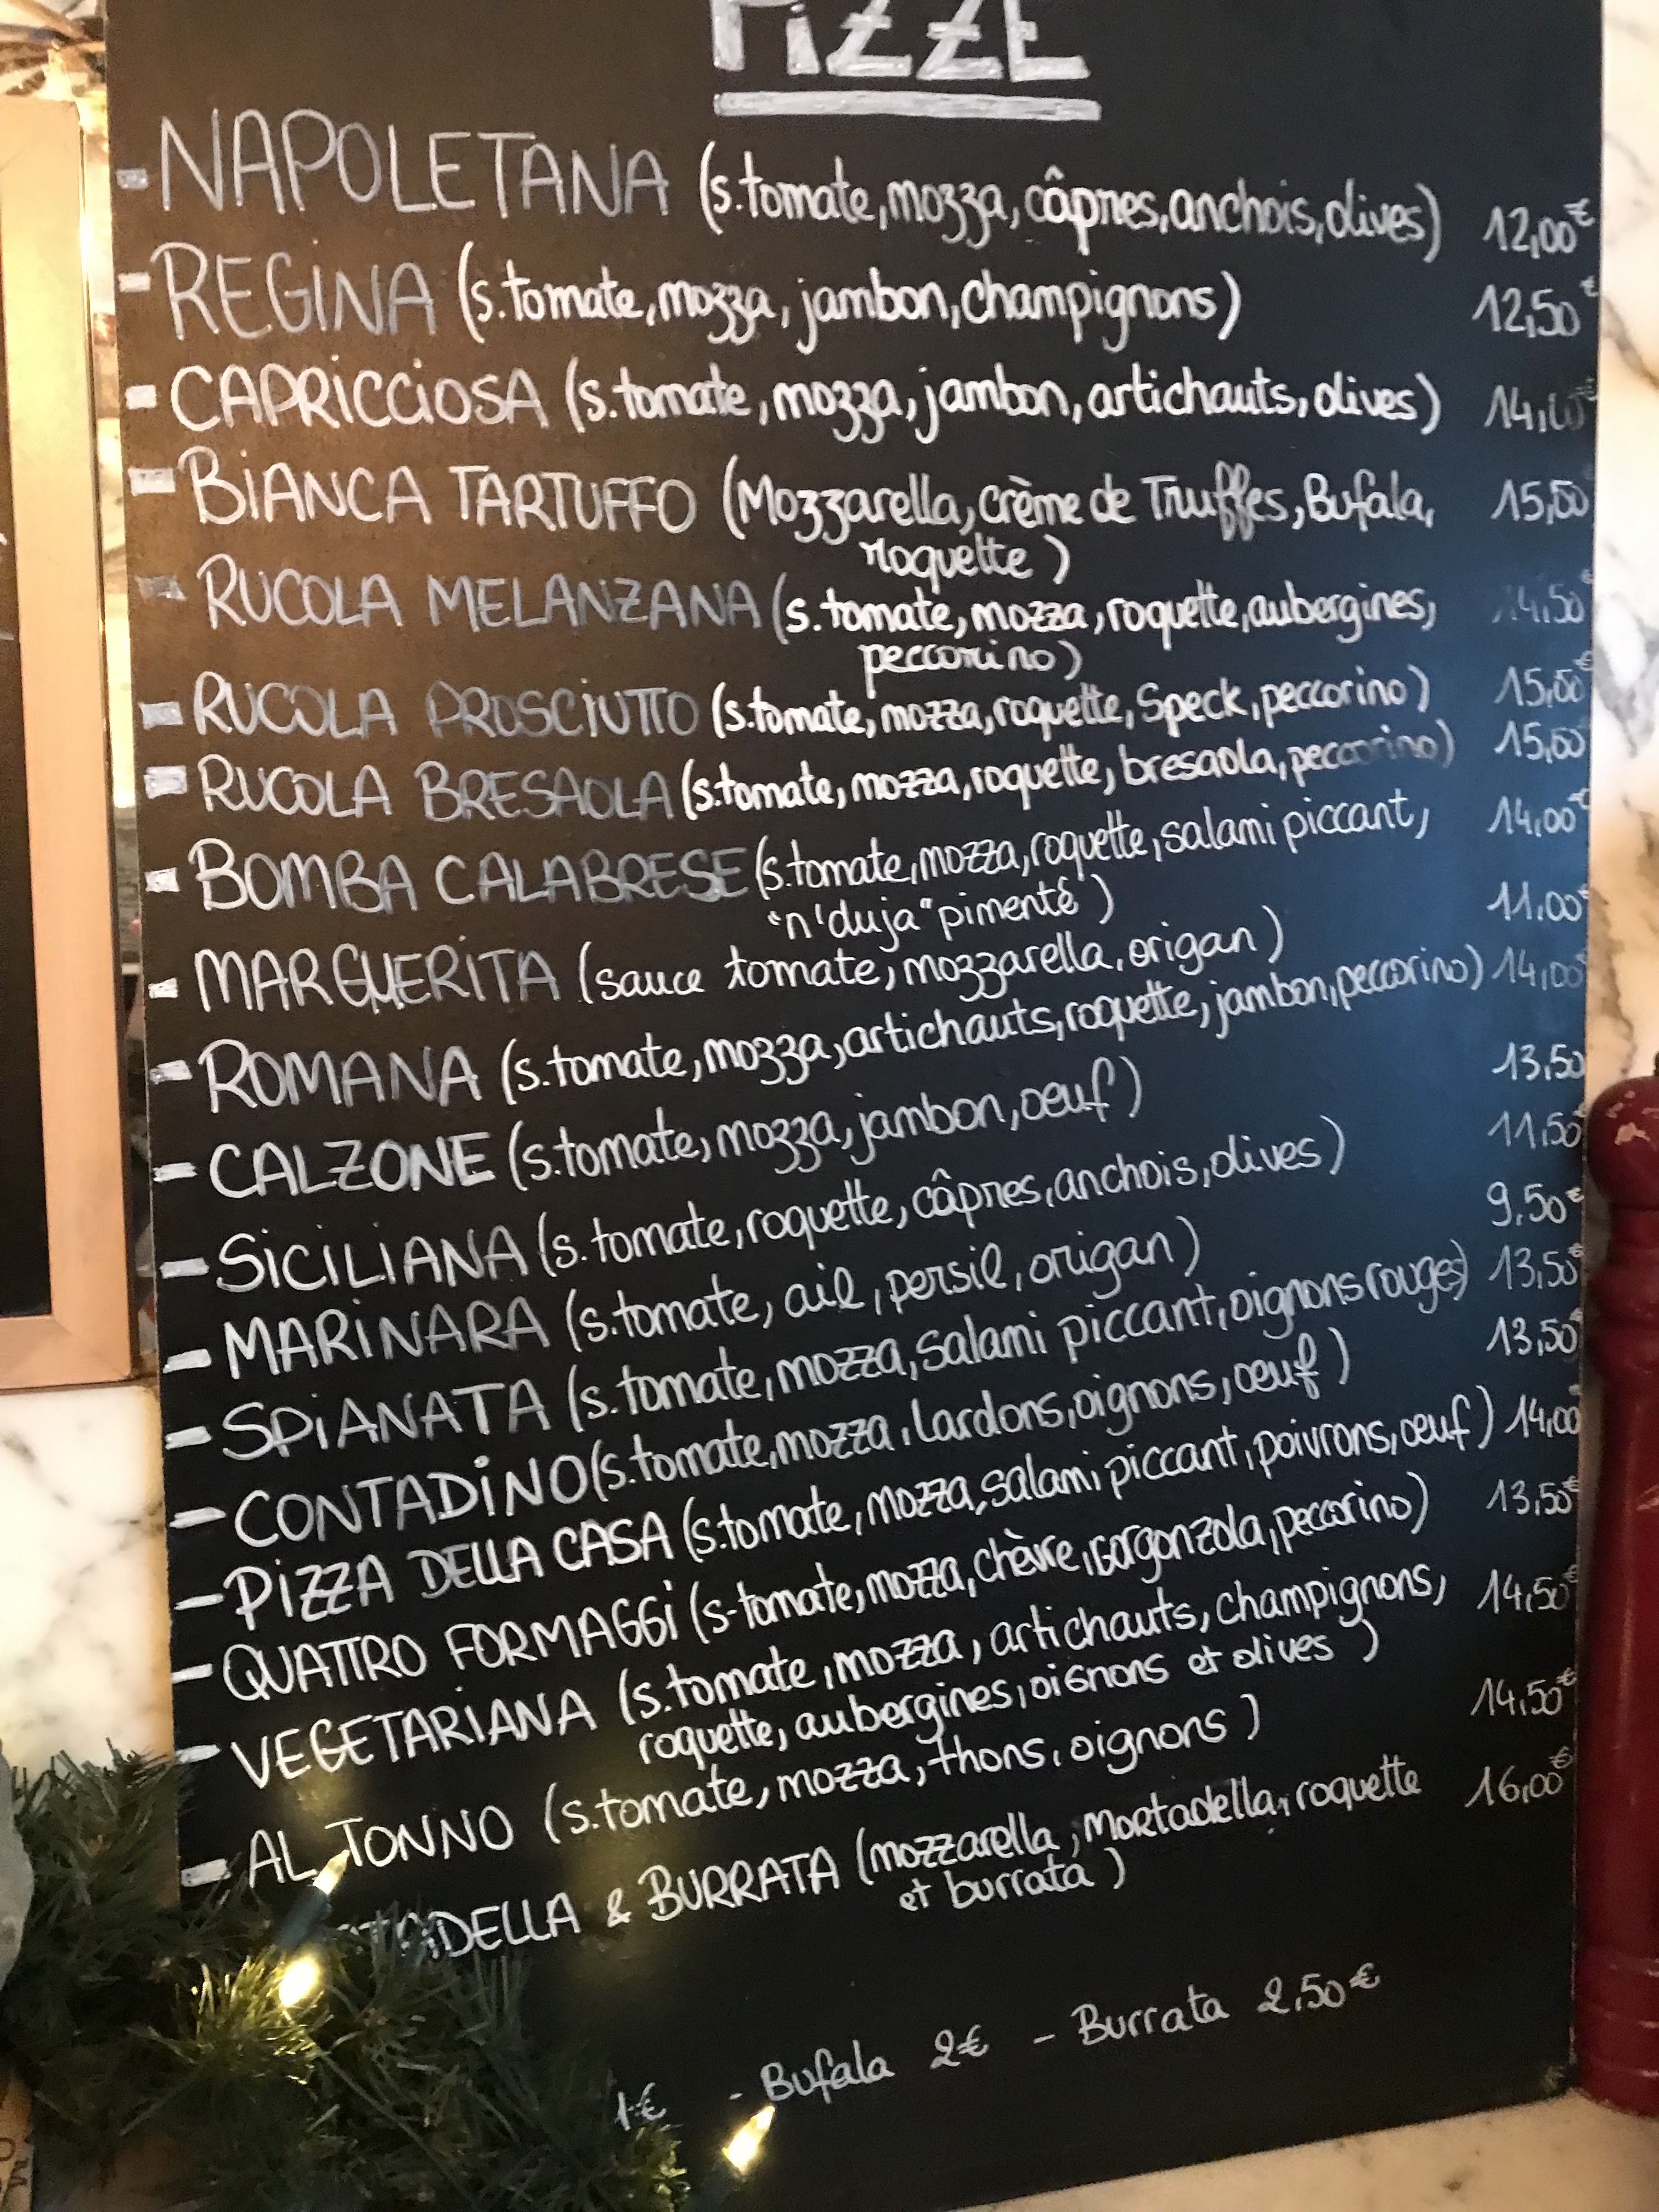 PiZZE
- NAPOLETANA (s.tomate, mozza, câpres, anchois, olives) 12,00€
- REGINA (s.tomate, mozza, jambon, champignons) 12,50€
- CAPRICCiOSA (s.tomate, mozza, jambon, artichauts, olives)
- BiANCA TARTUFFO (Mozzarella, crème de Truffes, Bufala, 15,50
roquette)
- RUCOLA MELANZANA (s.tomate, mozza, roquette, aubergines, 14,50
peccorino)
- RUCOLA PROSCiUTTO (s.tomate, mozza, roquette, Speck, peccorino)
- RUCOLA BRESAOLA (s.tomate, mozza, roquette, bresaola, peccorino)
- BOMBA CALABRESE (s.tomate, mozza, roquette, salami piccant, 14,00€
"n'duja" pimenté)
- MARGUERiTA (sauce tomate, mozzarella, origan) 11.00€
- ROMANA (s.tomate, mozza, artichauts, roquette, jambon, peccorino) 14,00€
- CALZONE (s.tomate, mozza, jambon, oeuf) 13,50
- SiCiLiANA (s.tomate, roquette, câpres, anchois, olives) 11,50
- MARiNARA (s.tomate, ail, persil, origan) 9,50€
- SPiANATA (s.tomate, mozza, salami piccant, oignons rouges) 13,50€
- CONTADiNO (s.tomate, mozza, lardons, oignons, oeuf) 13,50€
- PiZZA DELLA CASA (s.tomate, mozza, salami piccant, poivrons, oeuf) 14,00
- QUATTRO FORMAGGi (s-tomate, mozza, chèvre, gorgonzola, peccorino) 13,50€
- VEGETARIANA (s.tomate, mozza, artichauts, champignons, 14,50€
roquette, aubergines, oignons et olives)
- AL TONNO (s.tomate, mozza, thons, oignons) 14,50€
& BURRATA (mozzarella, Mortadella, roquette 16,00€
et burrata)
1€ - Bufala 2€ - Burrata 2,50€